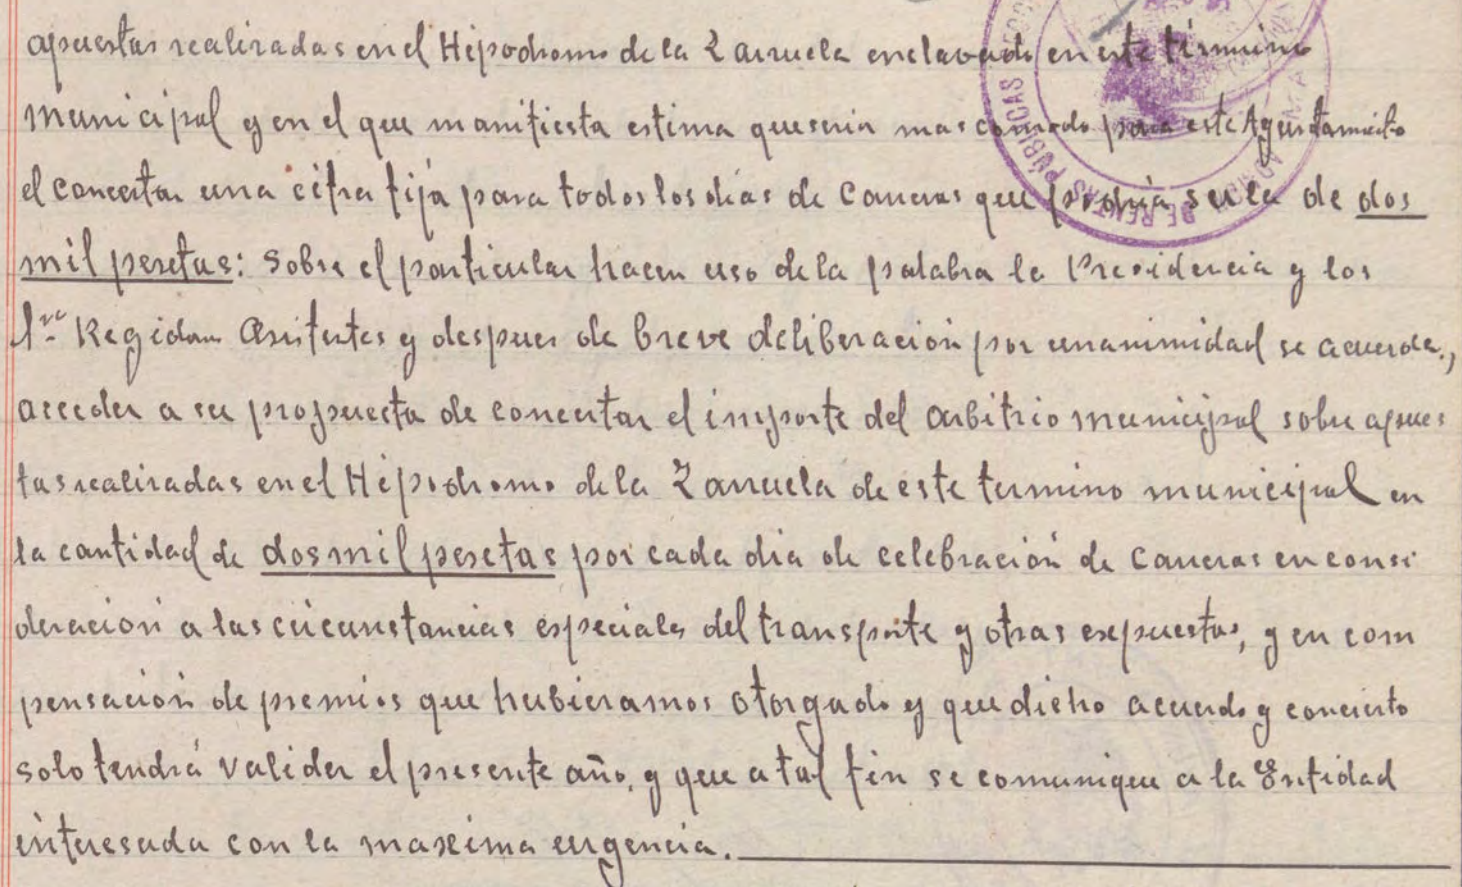 apuestas realizadas en el Hipodromo de la Zarzuela enclavado en este término
municipal y en el que manifiesta estima que seria mas comodo para este Ayuntamiento
el concertar una cifra fija para todos los dias de Carreras que podria ser la de dos
mil pesetas: Sobre el particular hacen uso de la palabra la Presidencia y los
Sres Regidores Asistentes y despues de breve deliberación por unanimidad se acuerda,
acceder a su propuesta de concertar el importe del arbitrio municipal sobre apues
tas realizadas en el Hipodromo de la Zarzuela de este termino municipal en
la cantidad de dos mil pesetas por cada dia de celebración de Carreras en consi
deración a las circunstancias especiales del transporte y otras expuestas, y en com
pensación de premios que hubieramos otorgado y que dicho acuerdo y concierto
solo tendrá validez el presente año, y que a tal fin se comunique a la Entidad
interesada con la maxima urgencia.
DE RENTAS PÚBLICAS